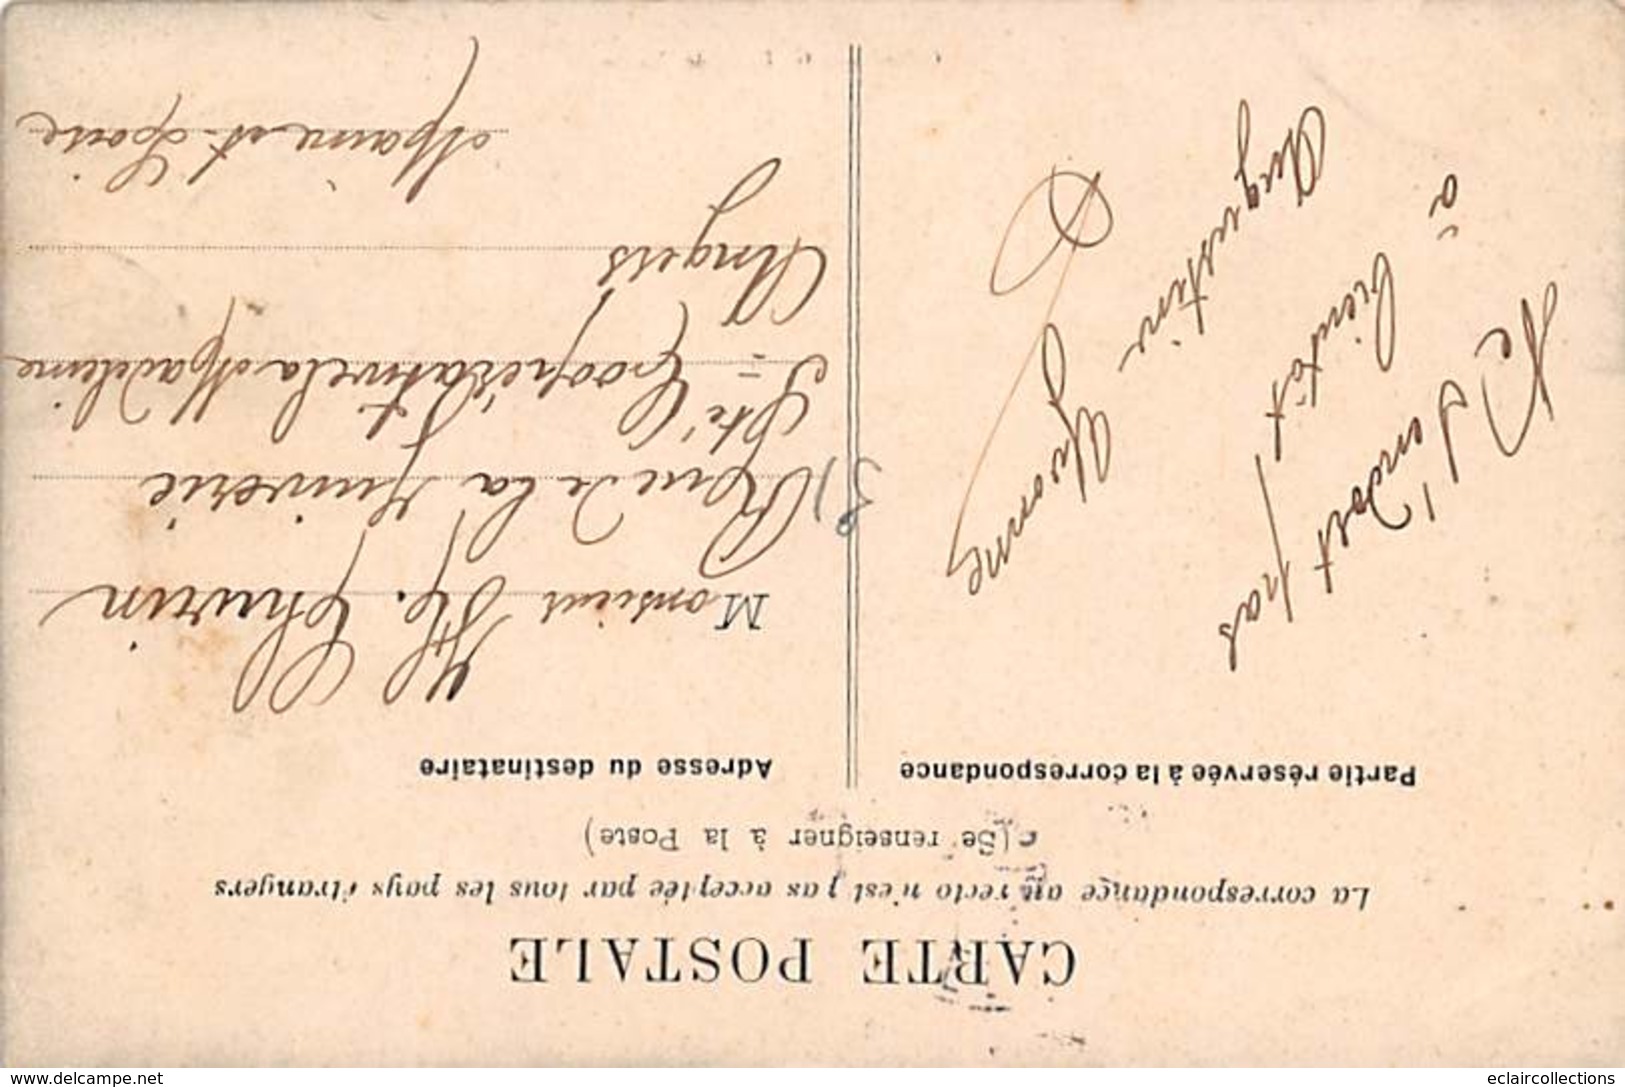 CARTE POSTALE
La correspondance au recto n'est pas acceptée par tous les pays étrangers
(Se renseigner à la Poste)
Partie réservée à la correspondance
Adresse du destinataire
à bientôt
Augustine
Yvonne
Monsieur Hp. Chauvin
Rue de la Juiverie
Sté Coopérative la Madeleine
Angers
Maine et Loire
www.delcampe.net
eclaircollections